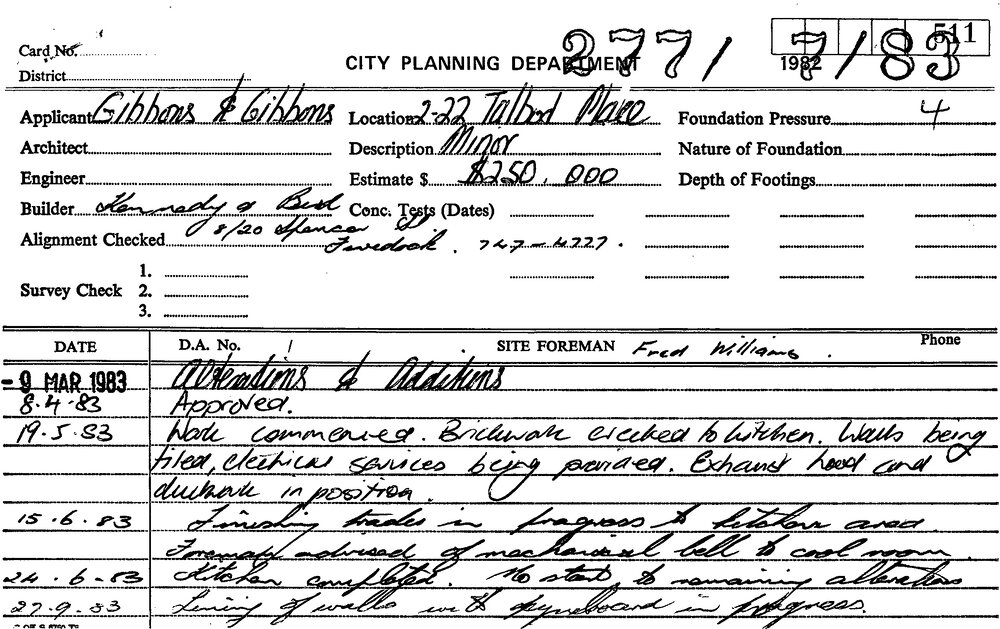 Card No.
511
277/7/83
CITY PLANNING DEPARTMENT 1982
District
Applicant Gibbons & Gibbons Location 2-22 Talbot Place Foundation Pressure 4
Architect Description Minor Nature of Foundation
Engineer Estimate $ $250.000 Depth of Footings
Builder Kennedy & Bird Conc. Tests (Dates)
8/20 Spencer St.
Alignment Checked 747-4777.
1.
Survey Check 2.
3.
DATE D.A. No. SITE FOREMAN Fred Williams. Phone
- 9 MAR 1983 Alterations & Additions
8.4.83 Approved.
19.5.83 Work commenced. Brickwork erected to kitchen. Walls being
tiled, electrical services being provided. Exhaust hood and
ductwork in position.
15.6.83 Finishing trades in progress to kitchen area.
Foreman advised of mechanical bell to cool room.
24.6-83 Kitchen completed. No start to remaining alterations
27.9.83 Lining of walls with gyproboard in progress.